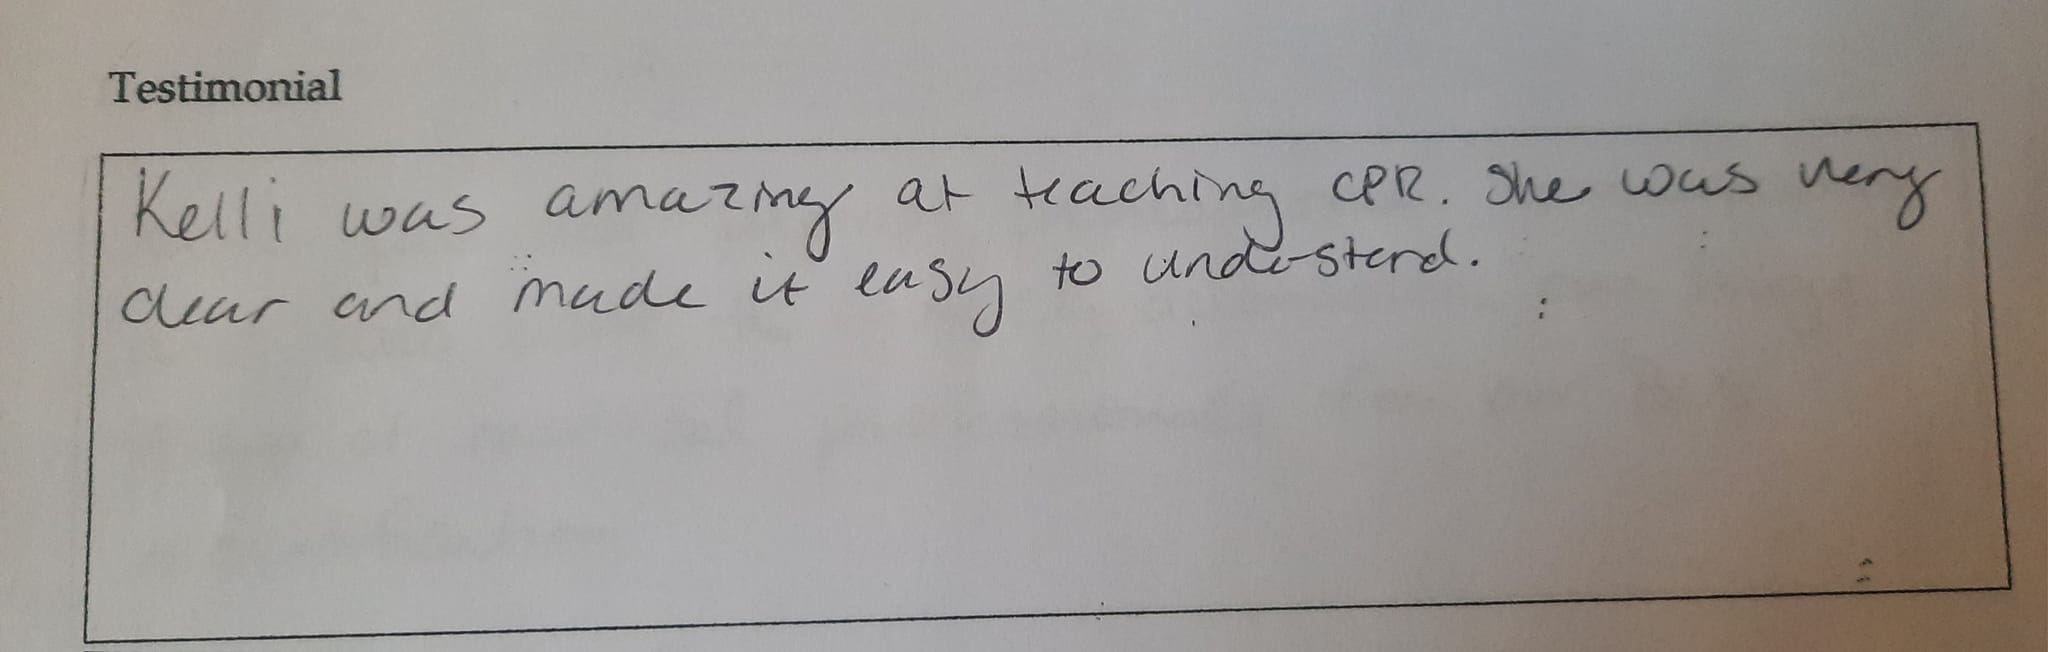 Testimonial
Kelli was amazing at teaching CPR. She was very
clear and made it easy to understand.